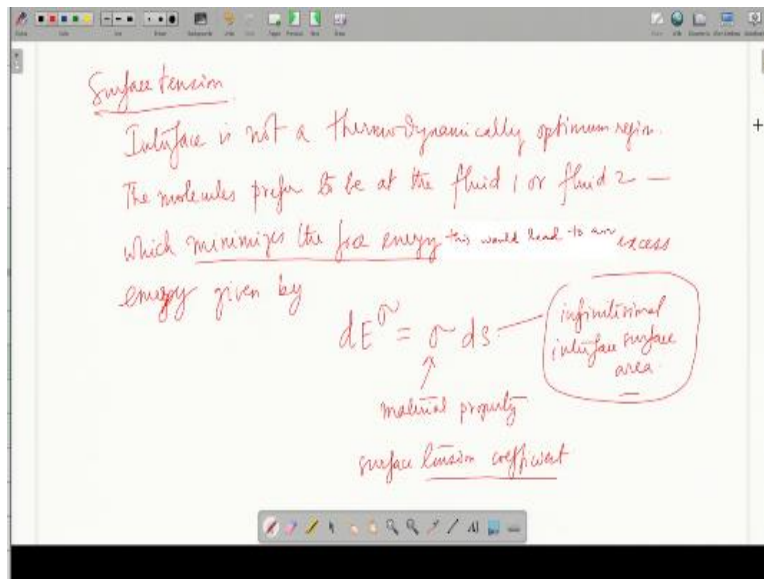 Surface tension
Interface is not a thermodynamically optimum region.
The molecules prefer to be at the fluid 1 or fluid 2 —
which minimizes the free energy this would lead to an excess
energy given by
dE^σ = σ ds — infinitisimal
interface surface
area.
material property
surface tension coefficient